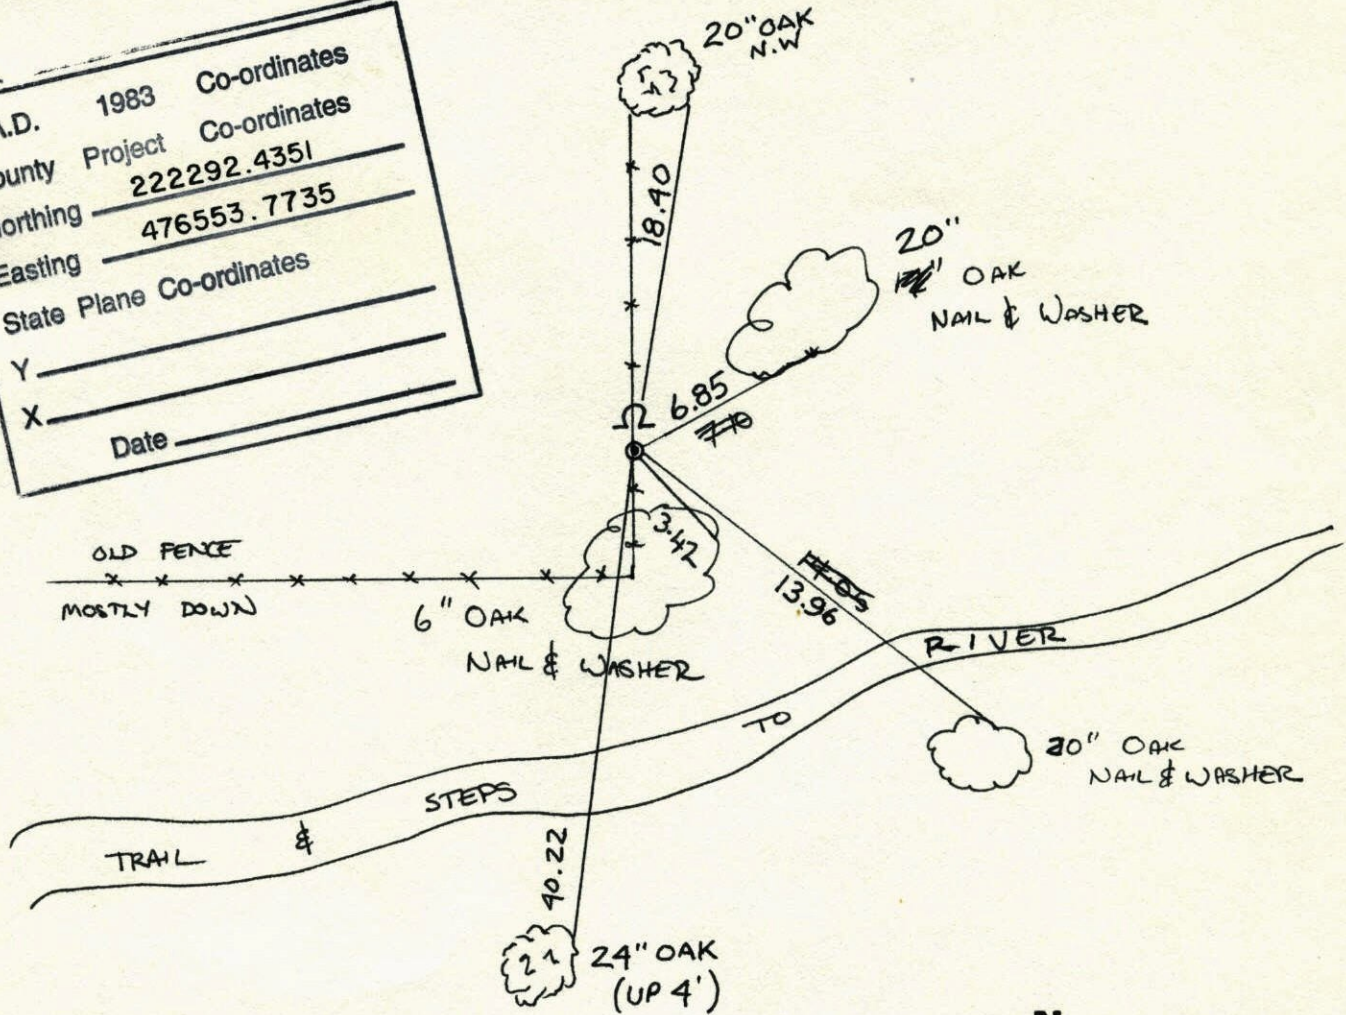 .D. 1983 Co-ordinates
ounty Project Co-ordinates
orthing 222292.4351
Easting 476553.7735
State Plane Co-ordinates
Y
X
Date
20" OAK
N.W
18.40
20"
" OAK
NAIL & WASHER
6.85
Ω
3.42
13.96
OLD FENCE
MOSTLY DOWN
6" OAK
NAIL & WASHER
TRAIL & STEPS TO RIVER
20" OAK
NAIL & WASHER
40.22
24" OAK
(UP 4')